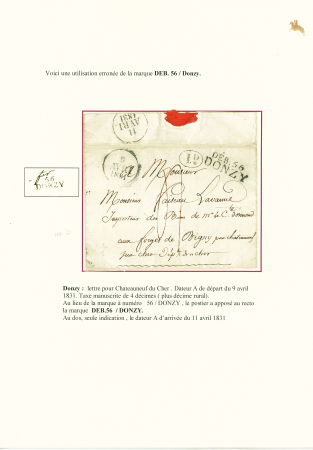 Voici une utilisation erronée de la marque DEB. 56 / Donzy.
11
AVRIL
1831
DEB. 56
DONZY
1D
9
1831
a Monsieur
Monsieur Lavanne
Inspecteur des
aux forges de Bigny par chateauneuf
sur cher Dépt du cher
56
DONZY
Donzy : lettre pour Chateauneuf du Cher . Dateur A de départ du 9 avril
1831. Taxe manuscrite de 4 décimes ( plus décime rural).
Au lieu de la marque à numéro 56 / DONZY , le postier a apposé au recto
la marque DEB.56 / DONZY.
Au dos, seule indication , le dateur A d'arrivée du 11 avril 1831